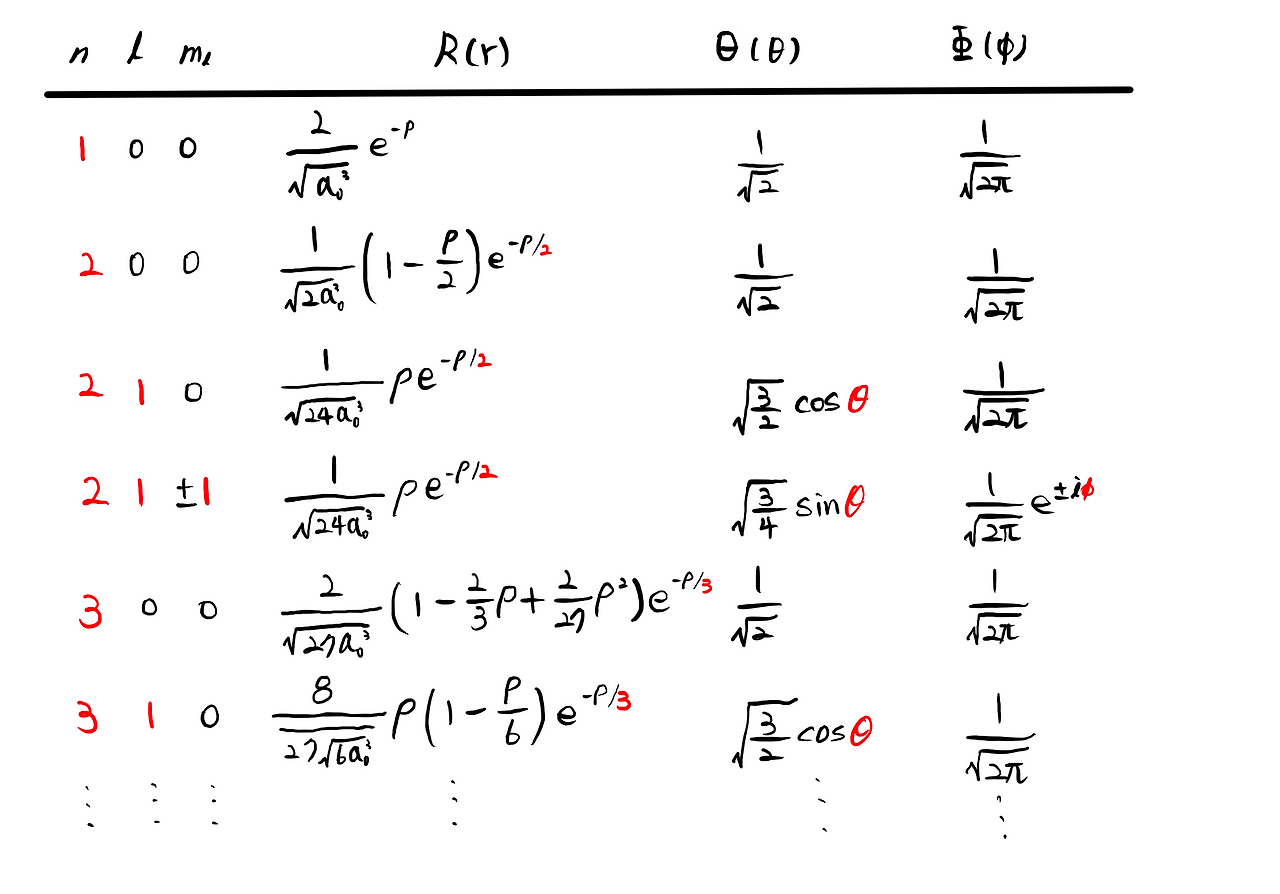 n l mₗ R(r) Θ(θ) Φ(ϕ)
1 0 0 2/√(a₀³) e^(-ρ) 1/√2 1/√(2π)
2 0 0 1/√(2a₀³) (1 - ρ/2) e^(-ρ/2) 1/√2 1/√(2π)
2 1 0 1/√(24a₀³) ρe^(-ρ/2) √(3/2) cosθ 1/√(2π)
2 1 ±1 1/√(24a₀³) ρe^(-ρ/2) √(3/4) sinθ 1/√(2π) e^(±iϕ)
3 0 0 2/√(27a₀³) (1 - 2/3 ρ + 2/27 ρ²) e^(-ρ/3) 1/√2 1/√(2π)
3 1 0 8/(27√(6a₀³)) ρ(1 - ρ/6) e^(-ρ/3) √(3/2) cosθ 1/√(2π)
⋮ ⋮ ⋮ ⋮ ⋮ ⋮